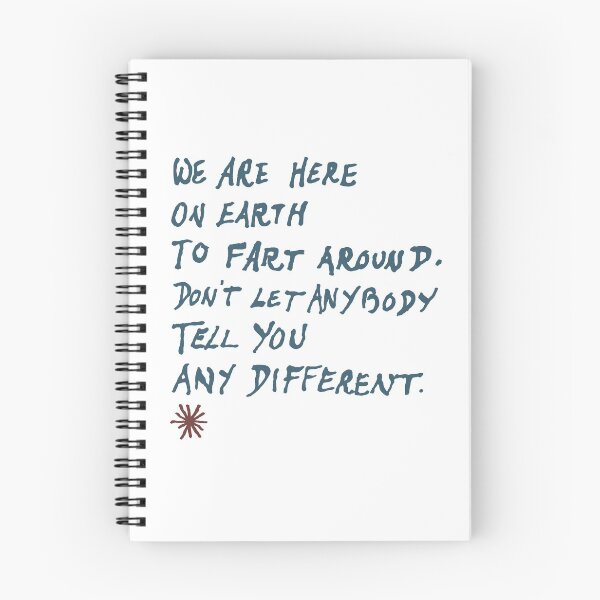 WE ARE HERE
ON EARTH
TO FART AROUND.
DON'T LET ANYBODY
TELL YOU
ANY DIFFERENT.